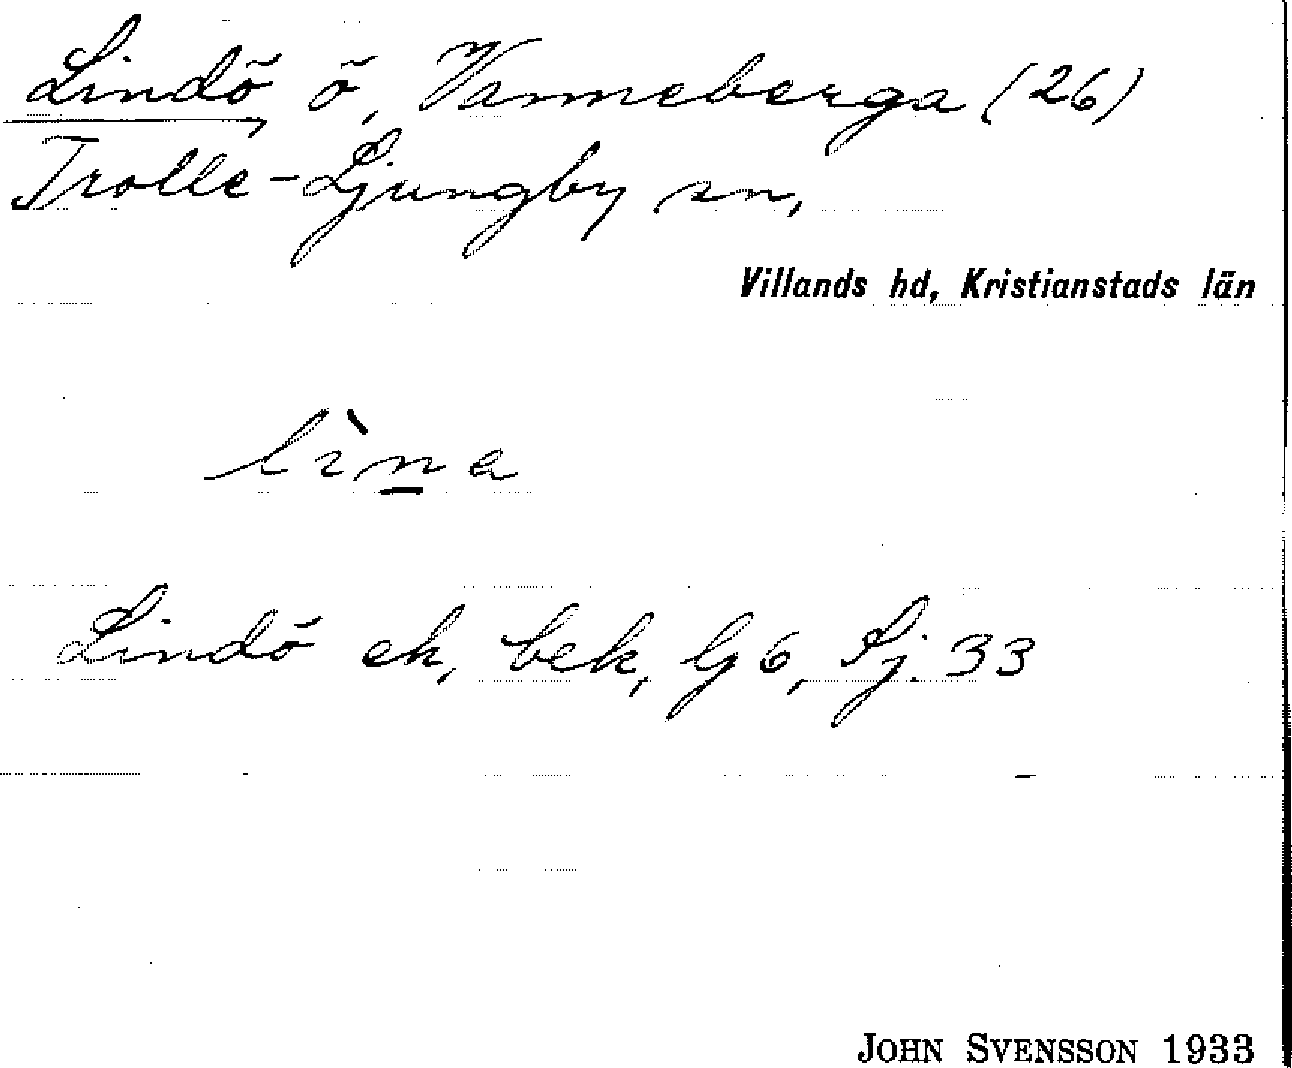 Lindö, ö, Vanneberga (26)
Trolle-Ljungby sn,
Villands hd, Kristianstads län
Lindö ek, bek, Lj 33
JOHN SVENSSON 1933